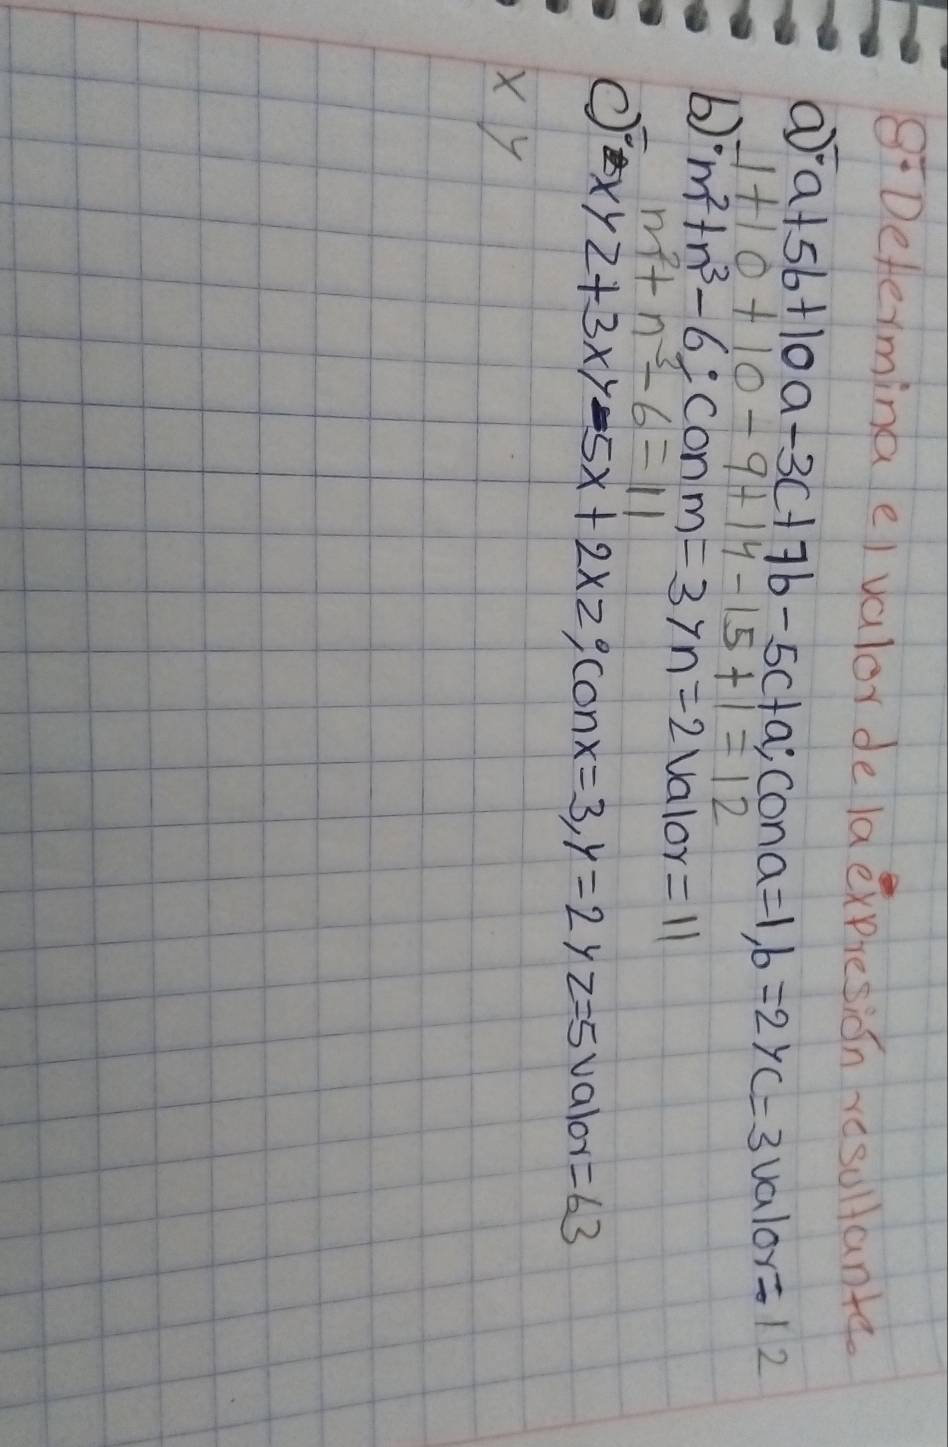 8.- Determina el valor de la expresión resultante.
a).- a+5b+10a-3c+7b-5c+a; con a=1, b=2 y c=3 valor=12
1+10+10-9+14-15+1=12
b).- m²+n³-6; con m=3 y n=2 valor=11
m²+n³-6=11
c).- xyz+3xy-5x+2xz; con x=3, y=2 y z=5 valor=63
xy